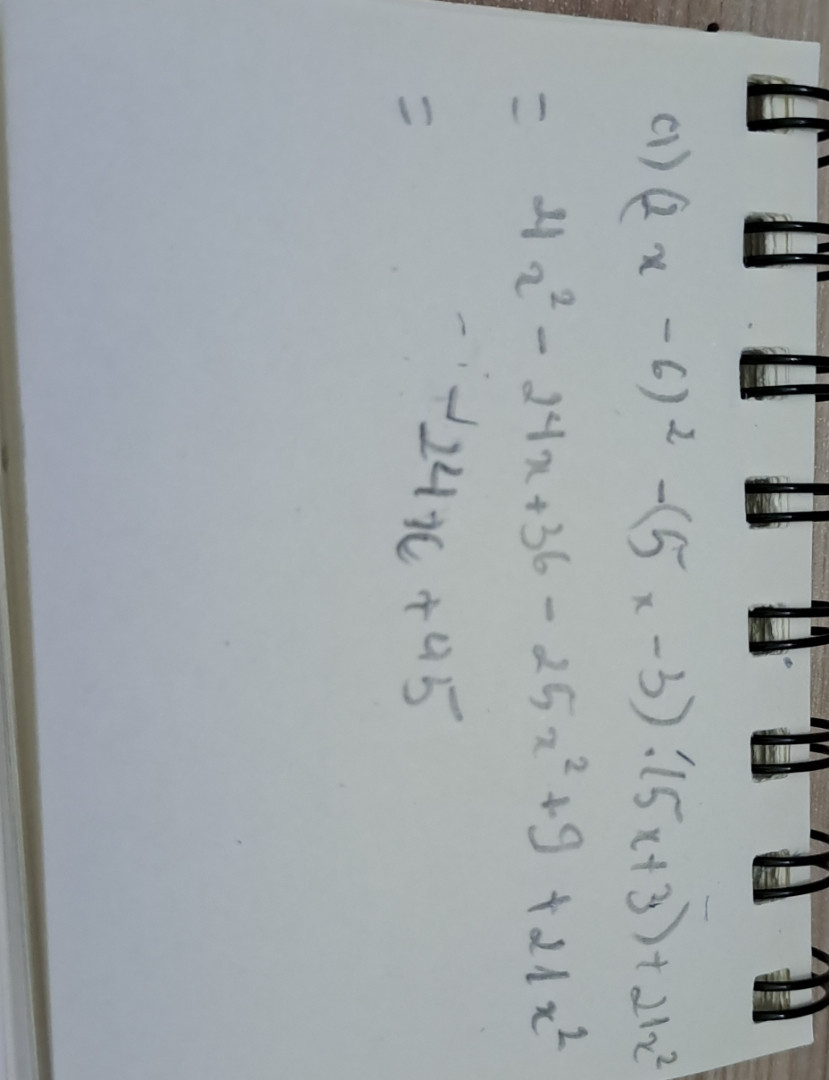 a) (2x - 6)² - (5x - 3)·(5x + 3) + 21x²
= 4x² - 24x + 36 - 25x² + 9 + 21x²
= -24x + 45